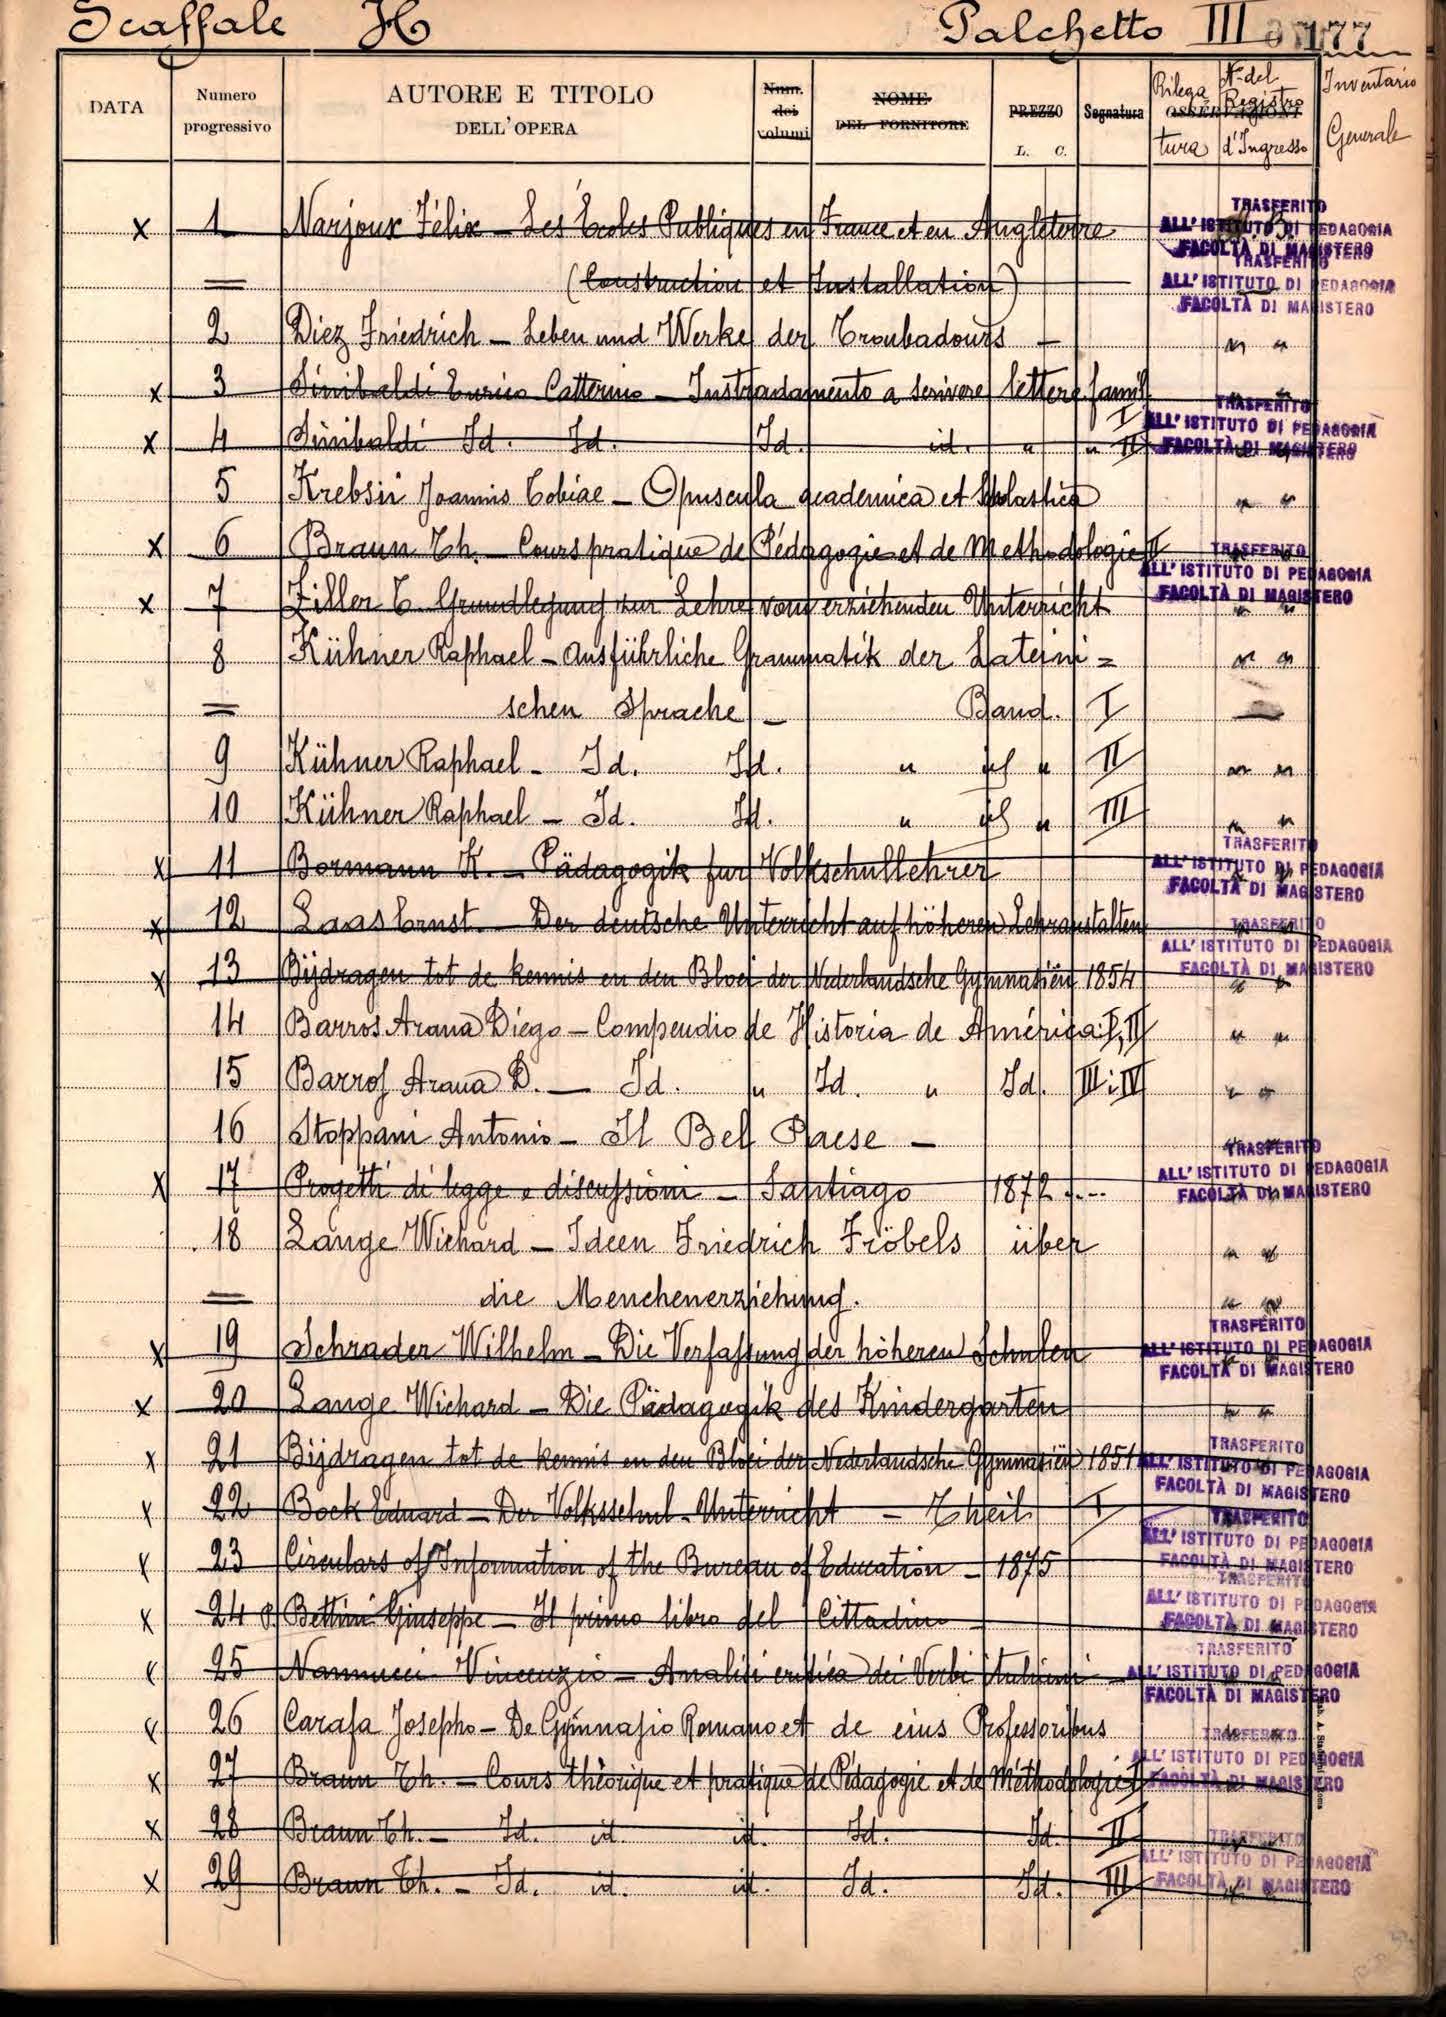 Scaffale H Palchetto III 177
DATA Numero progressivo AUTORE E TITOLO DELL'OPERA Num. dei volumi NOME DEL FORNITORE PREZZO L. C. Segnatura OSSERVAZIONI Rilegatura N. del Registro d'Ingresso Inventario Generale
x 1 Narjoux Félix — Les Écoles Publiques en France et en Angleterre
TRASFERITO ALL'ISTITUTO DI PEDAGOGIA FACOLTÀ DI MAGISTERO
= (Construction et Installation)
TRASFERITO ALL'ISTITUTO DI PEDAGOGIA FACOLTÀ DI MAGISTERO
2 Diez Friedrich — Leben und Werke der Troubadours — " "
x 3 Sinibaldi Enrico Catterino — Instradamento a scrivere lettere famil. I
x 4 Sinibaldi Id. Id. Id. id. " " II
TRASFERITO ALL'ISTITUTO DI PEDAGOGIA FACOLTÀ DI MAGISTERO
5 Krebsii Joannis Tobiae — Opuscula academica et Scholastica " "
x 6 Braun Th. — Cours pratique de Pédagogie et de Methodologie II
TRASFERITO ALL'ISTITUTO DI PEDAGOGIA FACOLTÀ DI MAGISTERO
x 7 Ziller T. Grundlegung zur Lehre vom erziehenden Unterricht " "
8 Kühner Raphael — Ausführliche Grammatik der Lateini = " "
= schen Sprache — Band. I —
9 Kühner Raphael — Id. Id. " id " II " "
10 Kühner Raphael — Id. Id. " id " III " "
x 11 Bormann K. — Pädagogik fur Volkschullehrer
TRASFERITO ALL'ISTITUTO DI PEDAGOGIA FACOLTÀ DI MAGISTERO
x 12 Laas Ernst. — Der deutsche Unterricht auf höheren Lehranstalten
TRASFERITO ALL'ISTITUTO DI PEDAGOGIA FACOLTÀ DI MAGISTERO
x 13 Bijdragen tot de kennis en den Bloei der Nederlandsche Gymnasiën 1854 " "
14 Barros Arana Diego — Compendio de Historia de América I, II " "
15 Barros Arana D. — Id. " Id. " Id. III i IV " "
16 Stoppani Antonio — Il Bel Paese — " "
x 17 Progetti di legge e discussioni — Santiago 1872
TRASFERITO ALL'ISTITUTO DI PEDAGOGIA FACOLTÀ DI MAGISTERO
18 Lange Wichard — Ideen Friedrich Fröbels über " "
= die Menchenerziehung. " "
x 19 Schrader Wilhelm — Die Verfassung der höheren Schulen
TRASFERITO ALL'ISTITUTO DI PEDAGOGIA FACOLTÀ DI MAGISTERO
x 20 Lange Wichard — Die Pädagogik des Kindergarten " "
x 21 Bijdragen tot de kennis en den Bloei der Nederlandsche Gymnasiën 1851
TRASFERITO ALL'ISTITUTO DI PEDAGOGIA FACOLTÀ DI MAGISTERO
x 22 Bock Eduard — Der Volksschul-Unterricht — Theil I
x 23 Circulars of Information of the Bureau of Education — 1875
TRASFERITO ALL'ISTITUTO DI PEDAGOGIA FACOLTÀ DI MAGISTERO
x 24 P. Bettini Giuseppe — Il primo libro del Cittadino —
TRASFERITO ALL'ISTITUTO DI PEDAGOGIA FACOLTÀ DI MAGISTERO
x 25 Nannucci Vincenzio — Analisi critica dei Verbi italiani —
TRASFERITO ALL'ISTITUTO DI PEDAGOGIA FACOLTÀ DI MAGISTERO
x 26 Carafa Josepho — De Gymnasio Romano et de eius Professoribus
x 27 Braun Th. — Cours théorique et pratique de Pédagogie et de Méthodologie I
TRASFERITO ALL'ISTITUTO DI PEDAGOGIA FACOLTÀ DI MAGISTERO
x 28 Braun Th. — Id. id. id. Id. Id. II
x 29 Braun Th. — Id. id. id. Id. Id. III
TRASFERITO ALL'ISTITUTO DI PEDAGOGIA FACOLTÀ DI MAGISTERO